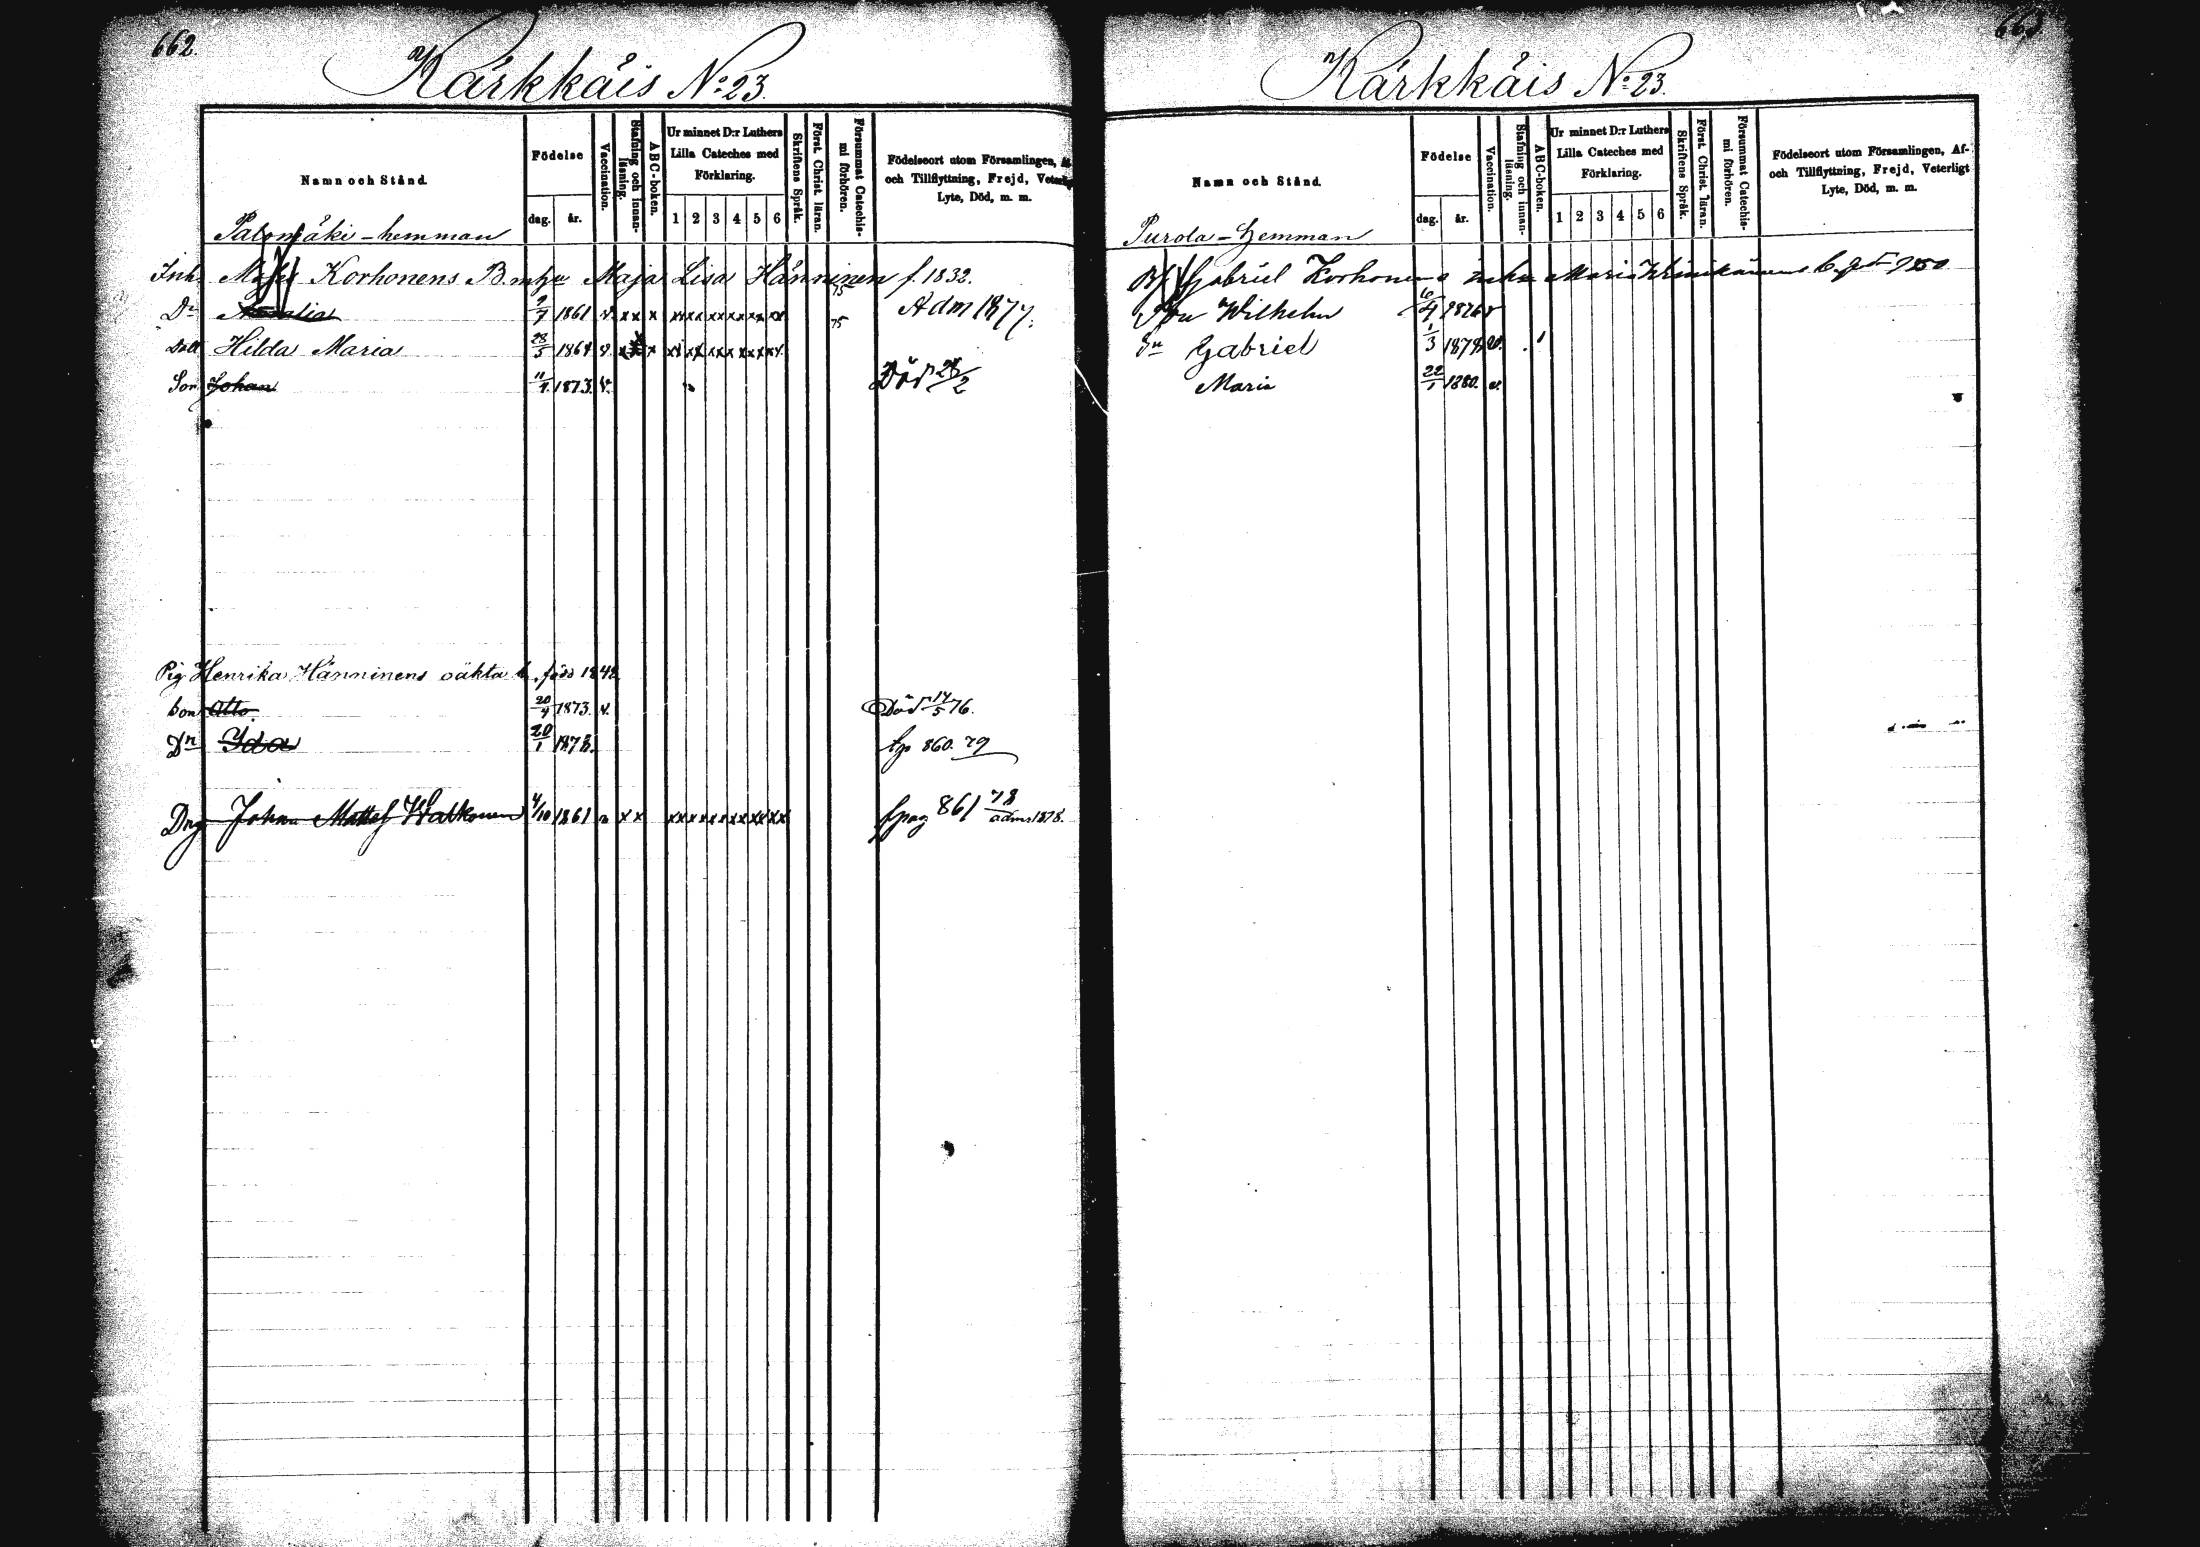 662.
Kärkkäis No: 23.
Namn och Stånd.
Födelse
dag.
år.
Vaccination.
Stafning och innan-
läsning.
ABC-boken.
Ur minnet D:r Luthers
Lilla Cateches med
Förklaring.
1 2 3 4 5 6
Skriftens Språk.
Först. Christ. läran.
Försummat Catechis-
mi förhören.
Födelseort utom Församlingen, Af-
och Tillflyttning, Frejd, Veterligt
Lyte, Död, m. m.
Palomäki-hemman
Inh. Korhonens B. m h u Maja Lisa Hänninen f. 1832.
Dr 9/7 1861 v. x x x xx xx xx xx xx xx 75 Adm 1877.
Dott Hilda Maria 28/5 1864 v. 75
Son Johan 11/9 1873. v. Död 2
Pig Henrika Hänninens oäkta b. född 1848
Son Otto 20/4 1873. v. Död 14/5 76.
Dr Ida 20/1 1878. fp 860. 79
Dng Johan Mattss Walkonen 4/10 1861 v x x xx xx xx xx xx xx fpag 861 78 adm 1878.
663
Kärkkäis No: 23.
Namn och Stånd.
Födelse
dag.
år.
Vaccination.
Stafning och innan-
läsning.
ABC-boken.
Ur minnet D:r Luthers
Lilla Cateches med
Förklaring.
1 2 3 4 5 6
Skriftens Språk.
Först. Christ. läran.
Försummat Catechis-
mi förhören.
Födelseort utom Församlingen, Af-
och Tillflyttning, Frejd, Veterligt
Lyte, Död, m. m.
Purola-Hemman
Gabriel Korhonens Maria
Son Wilhelm 6/4 1876 v
Sn Gabriel 1/3 1878 v.
Maria 22/1 1880. v.